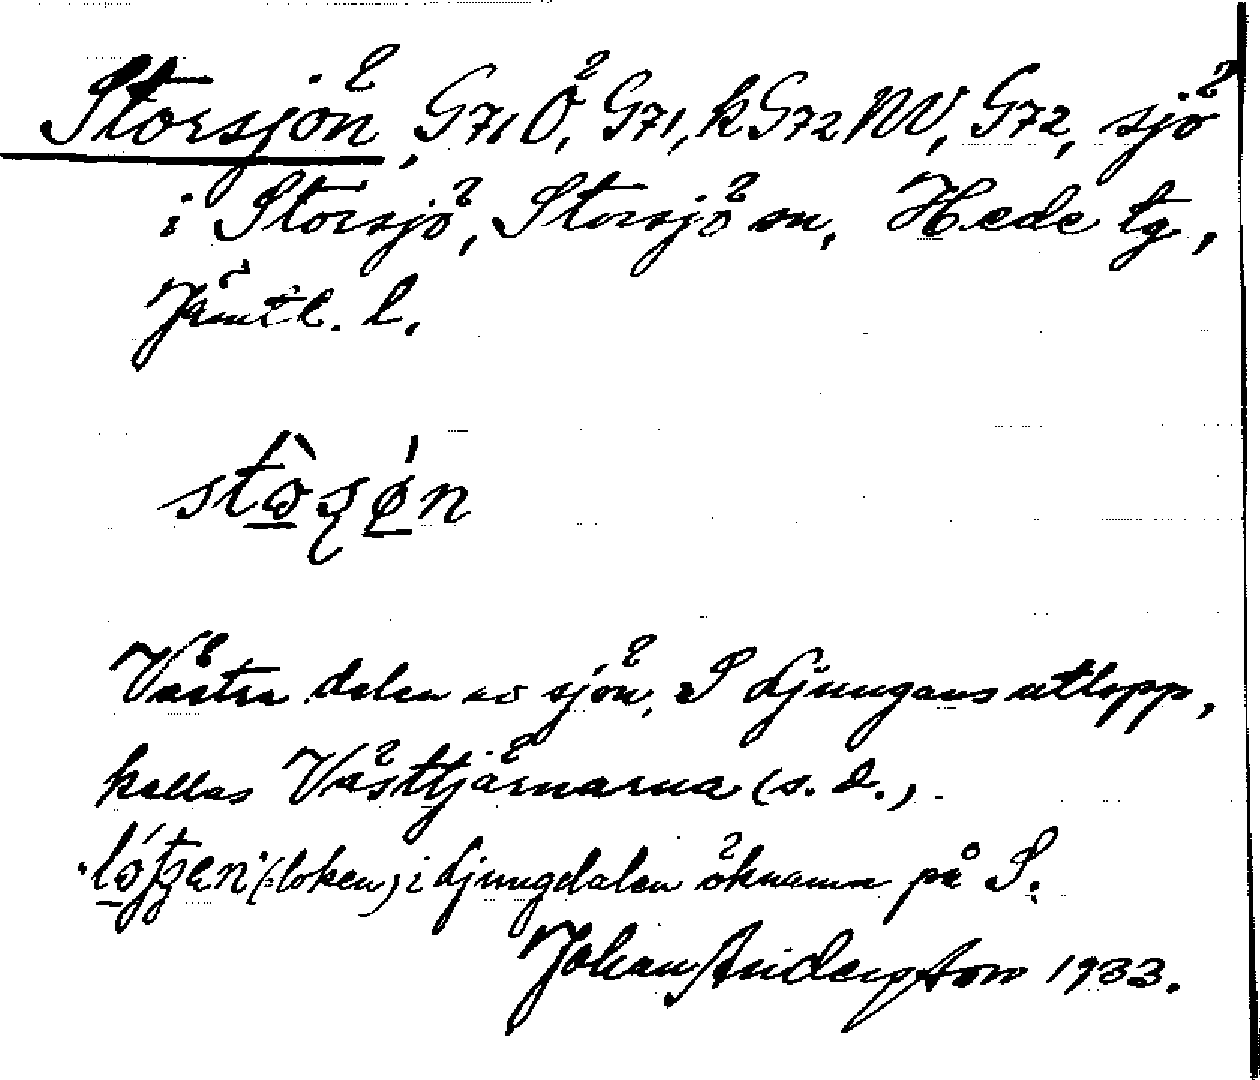 Storsjön, G71Ö, G71, kG72NV, G72, sjö
i Storsjö, Storsjö sn, Hede tg,
Jämtl. l.
Västra delen av sjön, S Ljungans utlopp,
kallas Västtjärnarna (s. d.).
(:loken) i Ljungdalen öknamn på S.
Johan Anderson 1933.